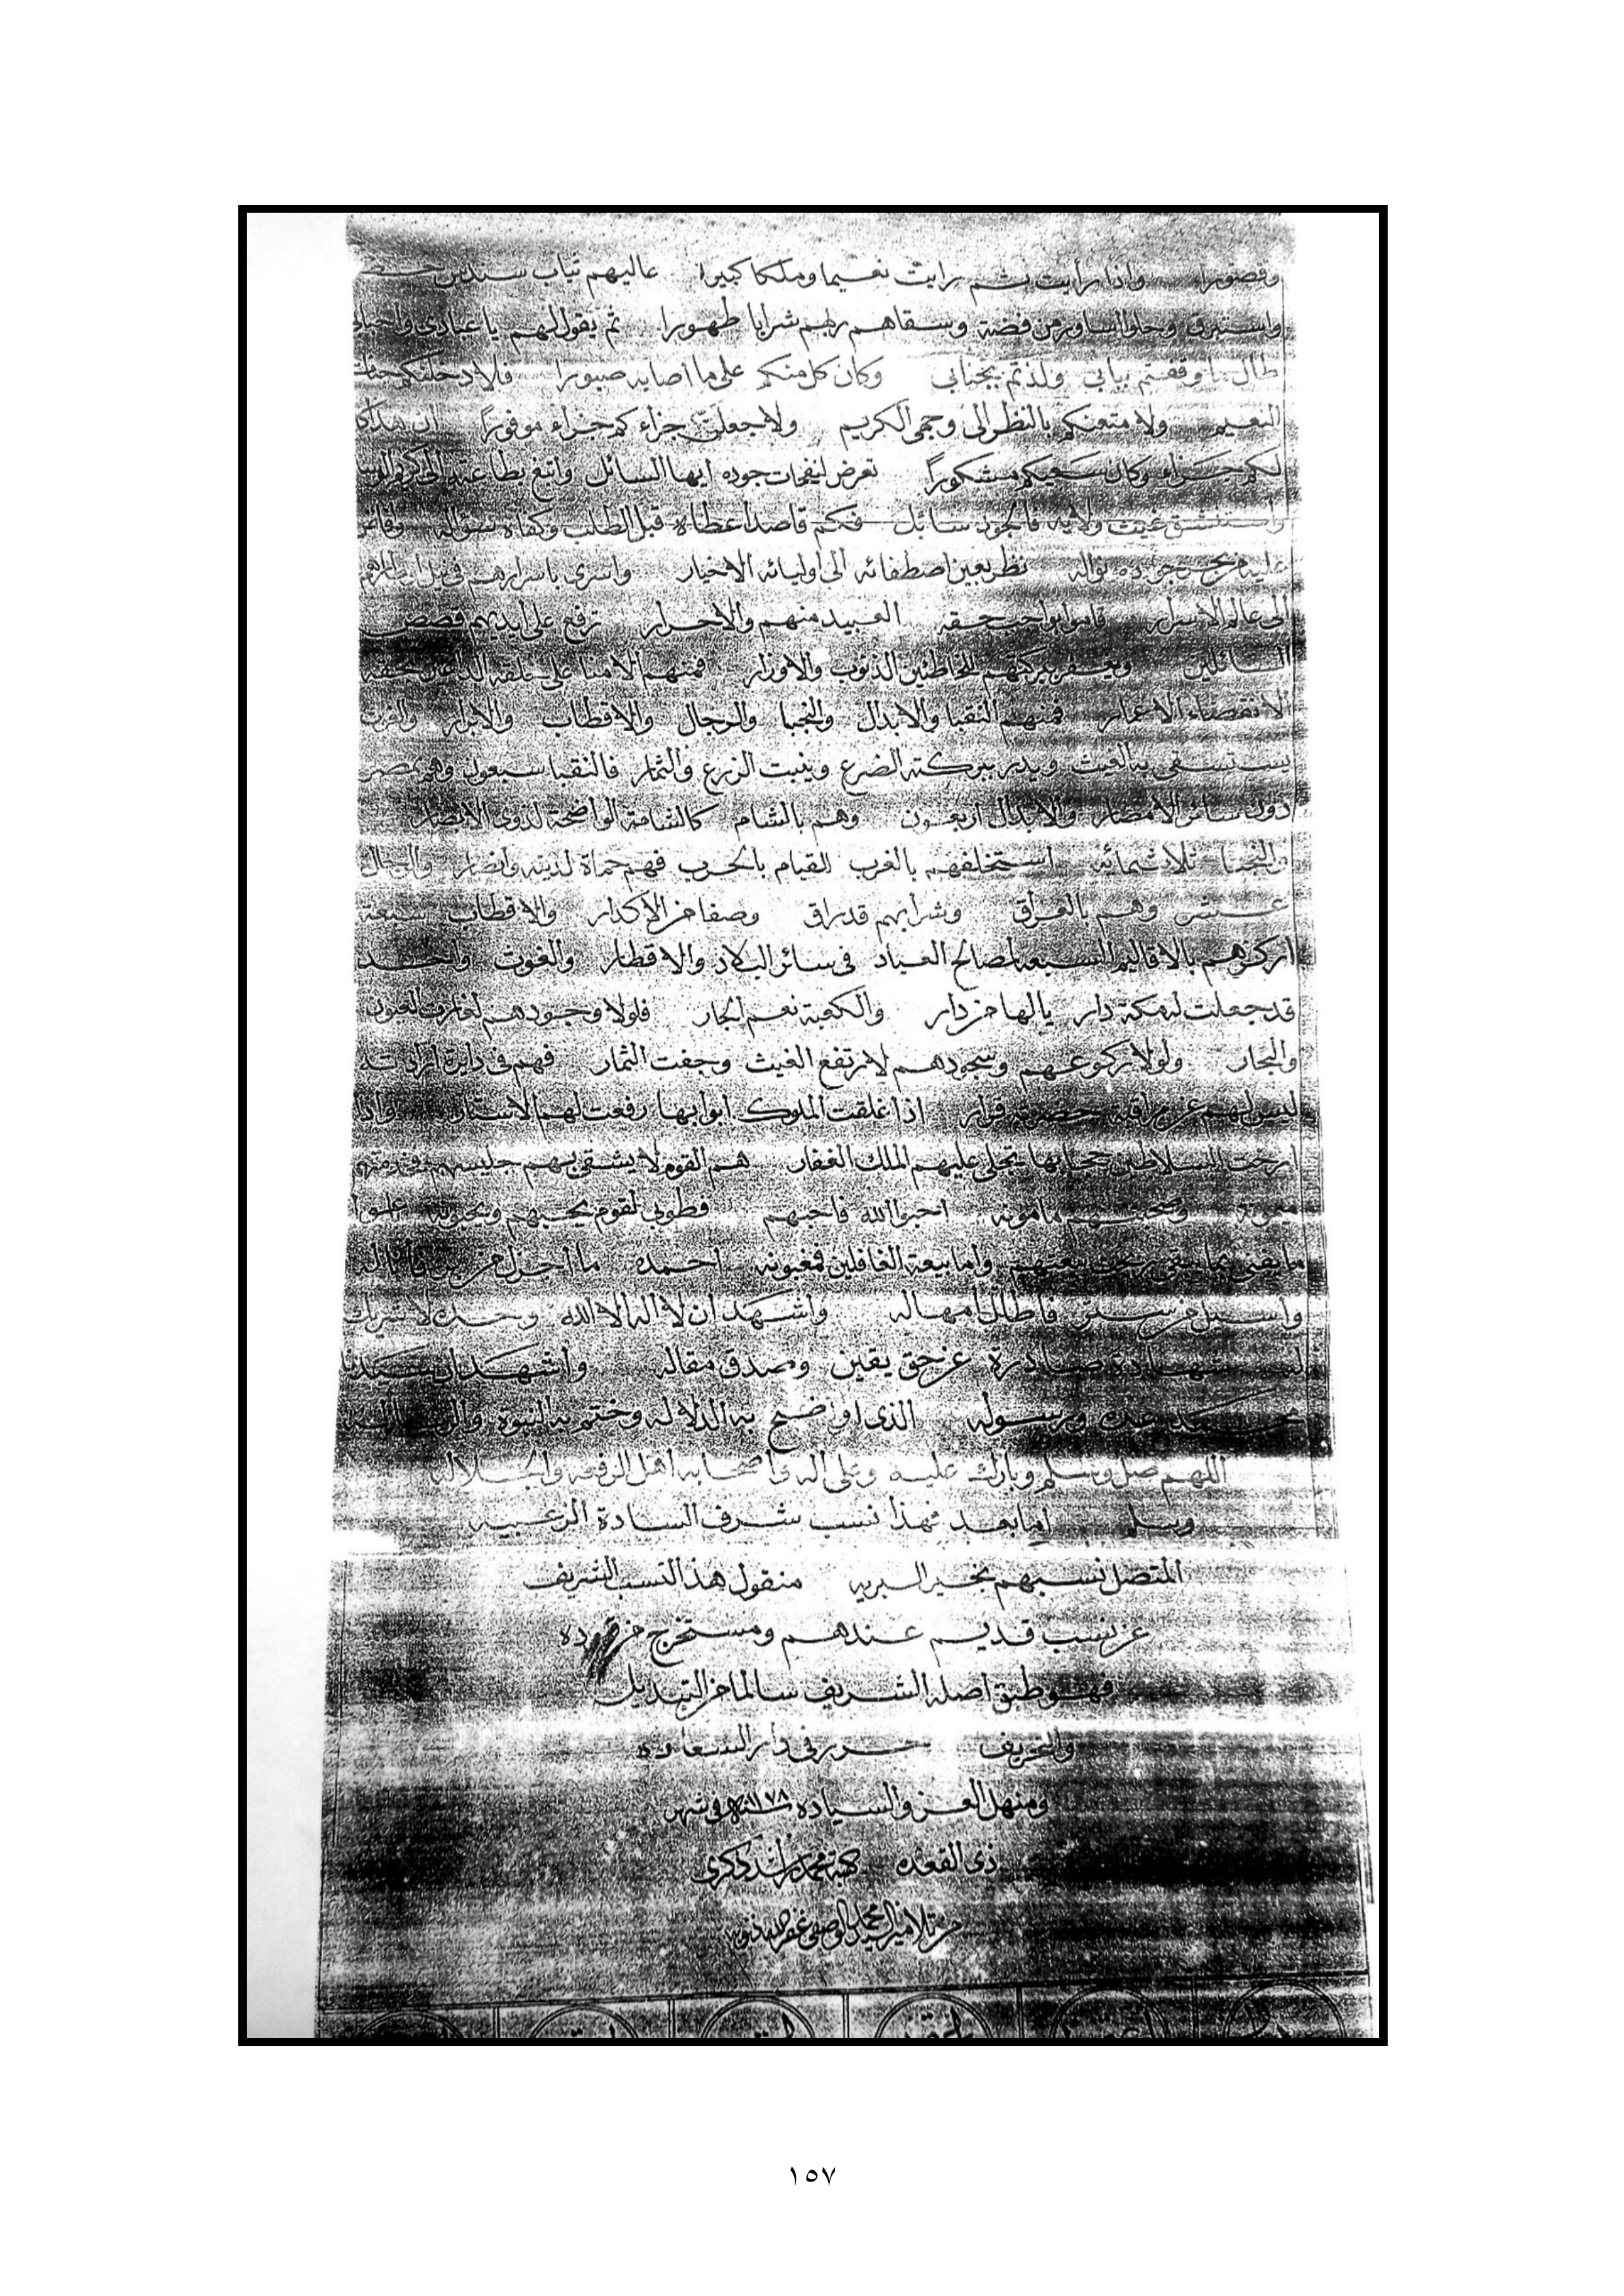 وقصورا واذا رأيت ثم رايت نعيما وملكا كبيرا عاليهم ثياب سندس خضر
واستبرق وحلوا اساور من فضة وسقاهم ربهم شرابا طهورا ثم يقول لهم يا عبادى واحبابى
طال ما وقفتم ببابي ولذتم بجنابي وكان كل منكم على ما اصابه صبورا فلادخلنكم جنات
النعيم ولا متعنكم بالنظر الى وجهى الكريم ولاجعلن جزاءكم جزاء موفورًا ان هذا كان
لكم جزاء وكان سعيكم مشكورًا تعرض لنفحات جوده ايها السائل وابتغ بطاعته
واستنشق غيث ولايه فالجود سائل فكم قاصد اعطاه قبل الطلب وكفاه سؤاله وافاض
عليه من بحر جوده نواله نظر بعين اصطفائه الى اوليائه الاخيار واسرى باسرارهم في ليل
الى عالم الاسرار قاموا بواجب حقه العبيد منهم والاحرار ترفع على ايديهم قصص
السائلين ويغفر ببركتهم للخاطئين الذنوب والاوزار فمنهم الامنا على خلقه
لانقضاء الاعمار فمنهم النقبا والابدال والنجبا والرجال والاقطاب والابرار والغوث
يستسقى به الغيث ويدر ببركته الضرع وينبت الزرع والثمار فالنقبا سبعون وهم بمصر
دون سائر الامصار والابدال اربعون وهم بالشام كالشامة الواضحة لذوى الابصار
والنجبا ثلاثمائة استخلفهم بالغرب للقيام بالحرب فهم حماة لدينه وانصار والرجال
عشر وهم بالعراق وشرابهم قد راق وصفا من الاكدار والاقطاب سبعة
اركزهم بالاقاليم السبعة لمصالح العباد في سائر البلاد والاقطار والغوث واحد
قد جعلت له مكة دار يالها من دار والكعبة نعم الجار فلولا وجودهم لغارت العيون
والبحار ولولا ركوعهم وسجودهم لارتفع الغيث وجفت الثمار فهم في دايرة
ليس لهم عن مراقبة حضرته قرار اذا غلقت الملوك ابوابها رفعت لهم الاستار واذا
ارخت السلاطين حجابها تجلى عليهم الملك الغفار هم القوم لا يشقى بهم جليسهم
ميمونه وصحبتهم مامونه احبوا الله فاحبهم فطوبى لقوم يحبهم ويحبونه
ما يفنى بما يبقى ربحت بيعتهم واما بيعة الغافلين فمغبونه احمده ما اجزل من
واسبل من ستر فاطال امهاله واشهد ان لا اله الا الله وحده لا شريك
له شهادة صادرة عن حق يقين وصدق مقاله واشهد ان سيدنا
محمد عبده ورسوله الذى اوضح به الدلاله وختم به النبوة والرساله
اللهم صل وسلم وبارك عليه وعلى اله واصحابه اهل الرفعه والجلاله
وسلم اما بعد فهذا نسب شرف السادة الزعبيه
المتصل نسبهم بخير البريه منقول هذا النسب الشريف
عن نسب قديم عندهم ومستخرج من
فهو طبق اصله الشريف سالما من التبديل
والتحريف حرر في دار السعاده
ومنهل العز والسياده ١١٧٨ في شهر
ذى القعده كتبه محمد راشد
من تلاميذ السيد محمد الوصفى غفر ذنوبه
١٥٧